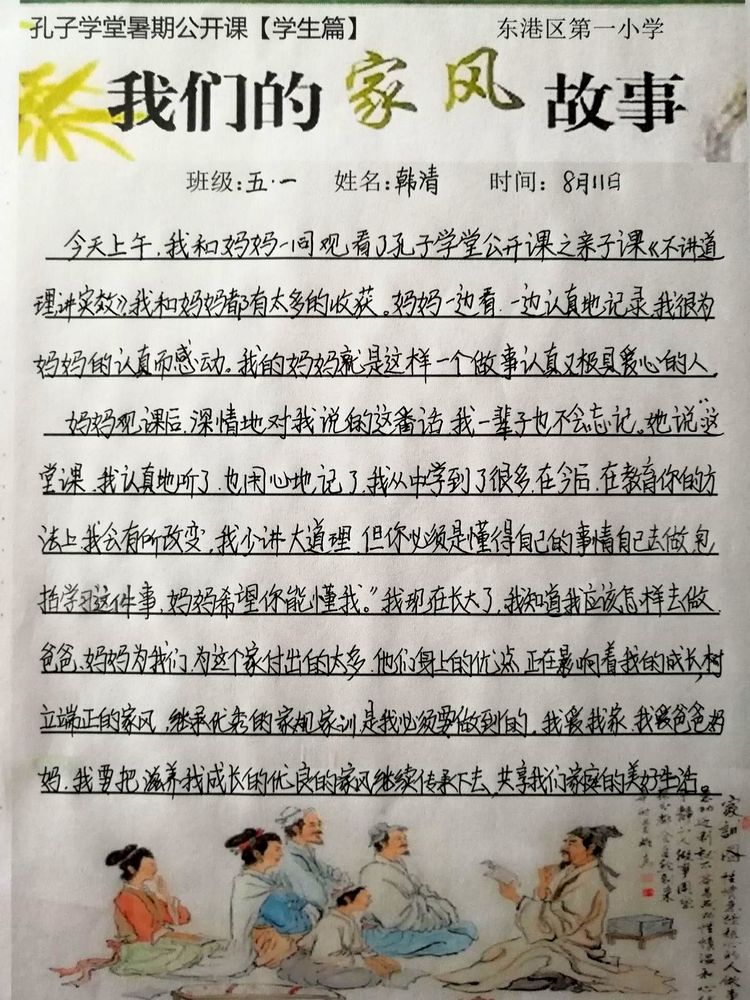 孔子学堂暑期公开课【学生篇】 东港区第一小学
我们的家风故事
班级:五·一 姓名:韩清 时间: 8月11日
今天上午,我和妈妈一同观看了孔子学堂公开课之亲子课《不讲道
理讲实效》,我和妈妈都有太多的收获。妈妈一边看,一边认真地记录,我很为
妈妈的认真而感动。我的妈妈就是这样一个做事认真又极具爱心的人。
妈妈观课后,深情地对我说的这番话,我一辈子也不会忘记。她说:“这
堂课,我认真地听了,也用心地记了,我从中学到了很多,在今后,在教育你的方
法上,我会有所改变,我少讲大道理,但你必须是懂得自己的事情自己去做,包
括学习这件事,妈妈希望你能懂我。”我现在长大了,我知道我应该怎样去做。
爸爸、妈妈为我们,为这个家付出的太多,他们身上的优点,正在影响着我的成长,树
立端正的家风,继承优秀的家规家训是我必须要做到的。我爱我家,我爱爸爸妈
妈,我要把滋养我成长的优良的家风继续传承下去,共享我们家庭的美好生活。
家训图